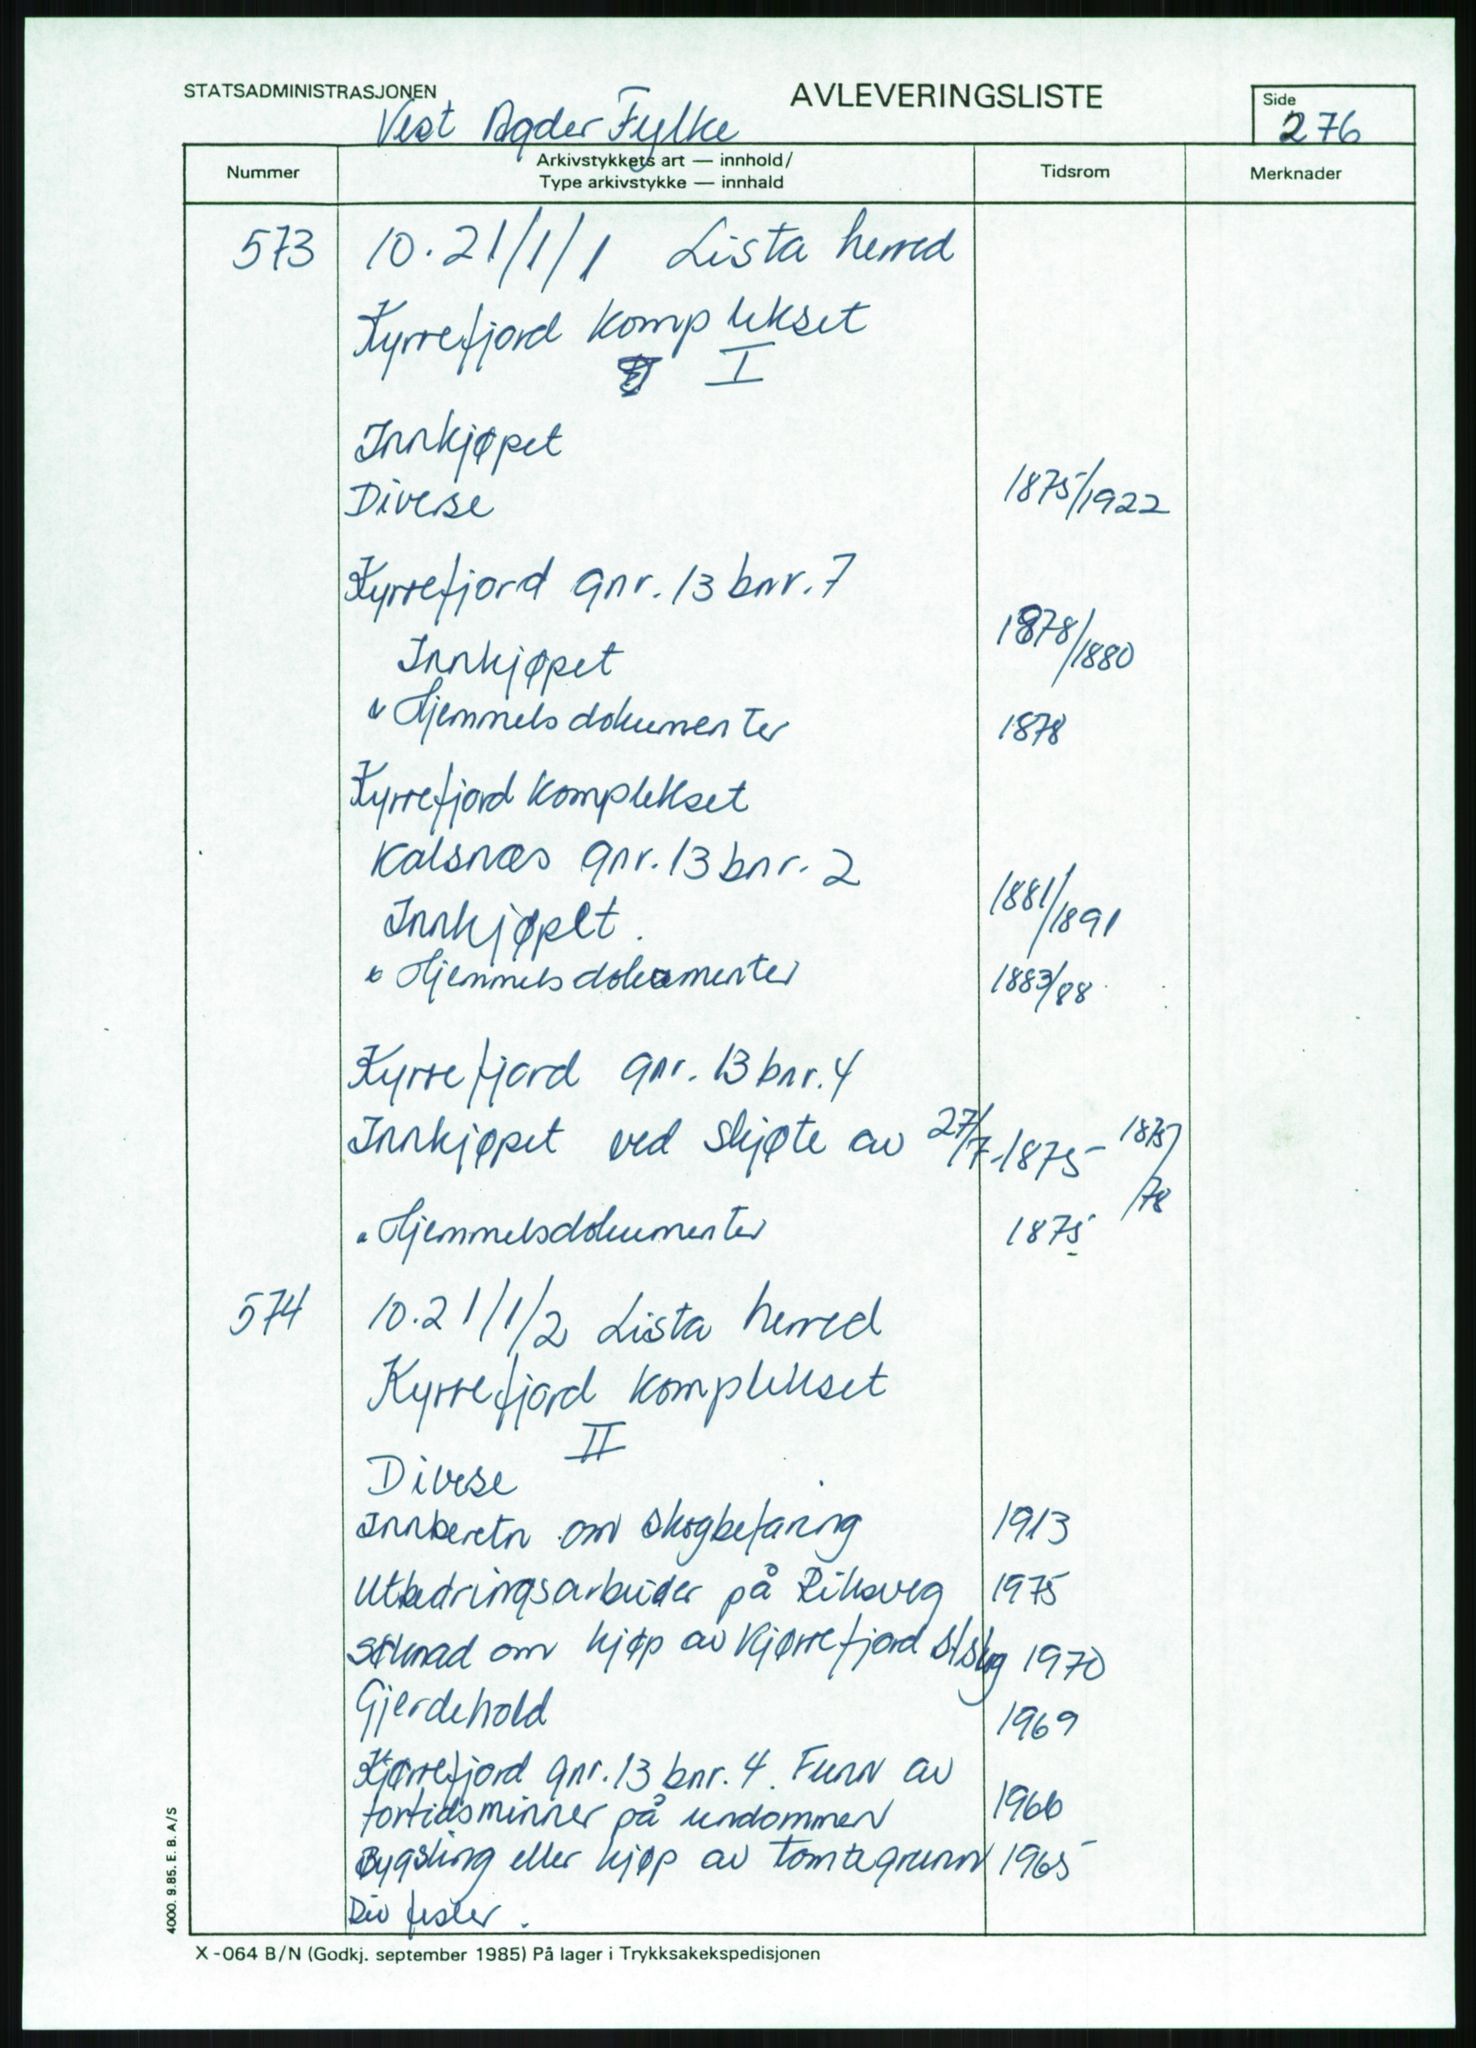 STATSADMINISTRASJONEN
AVLEVERINGSLISTE
Side
276
Vest Agder Fylke
Nummer
Arkivstykkets art — innhold/
Type arkivstykke — innhald
Tidsrom
Merknader
573 10.21/1/1 Lista herred
Kyrrefjord komplekset
I
Innkjøpet
Diverse 1875/1922
Kyrrefjord gnr. 13 bnr. 7
Innkjøpet 1878/1880
" Hjemmelsdokumenter 1878
Kyrrefjord komplekset
Kalsnæs gnr. 13 bnr. 2
Innkjøpet. 1881/1891
" Hjemmelsdokumenter 1883/88
Kyrrefjord gnr. 13 bnr. 4
Innkjøpet ved skjøte av 27/7-1875 1875/78
" Hjemmelsdokumenter 1875
574 10.21/1/2 Lista herred
Kyrrefjord komplekset
II
Diverse
Innberetn om skogbefaring 1913
Utbedringsarbeider på Riksveg 1975
Søknad om kjøp av Kjørrefjord st.skog 1970
Gjerdehold 1969
Kjørrefjord gnr. 13 bnr. 4. Funn av
fortidsminner på eiendommen 1966
Bygsling eller kjøp av tomtegrunn 1965
Div fester.
4000. 9.85. E. B. A/S
X-064 B/N (Godkj. september 1985) På lager i Trykksakekspedisjonen